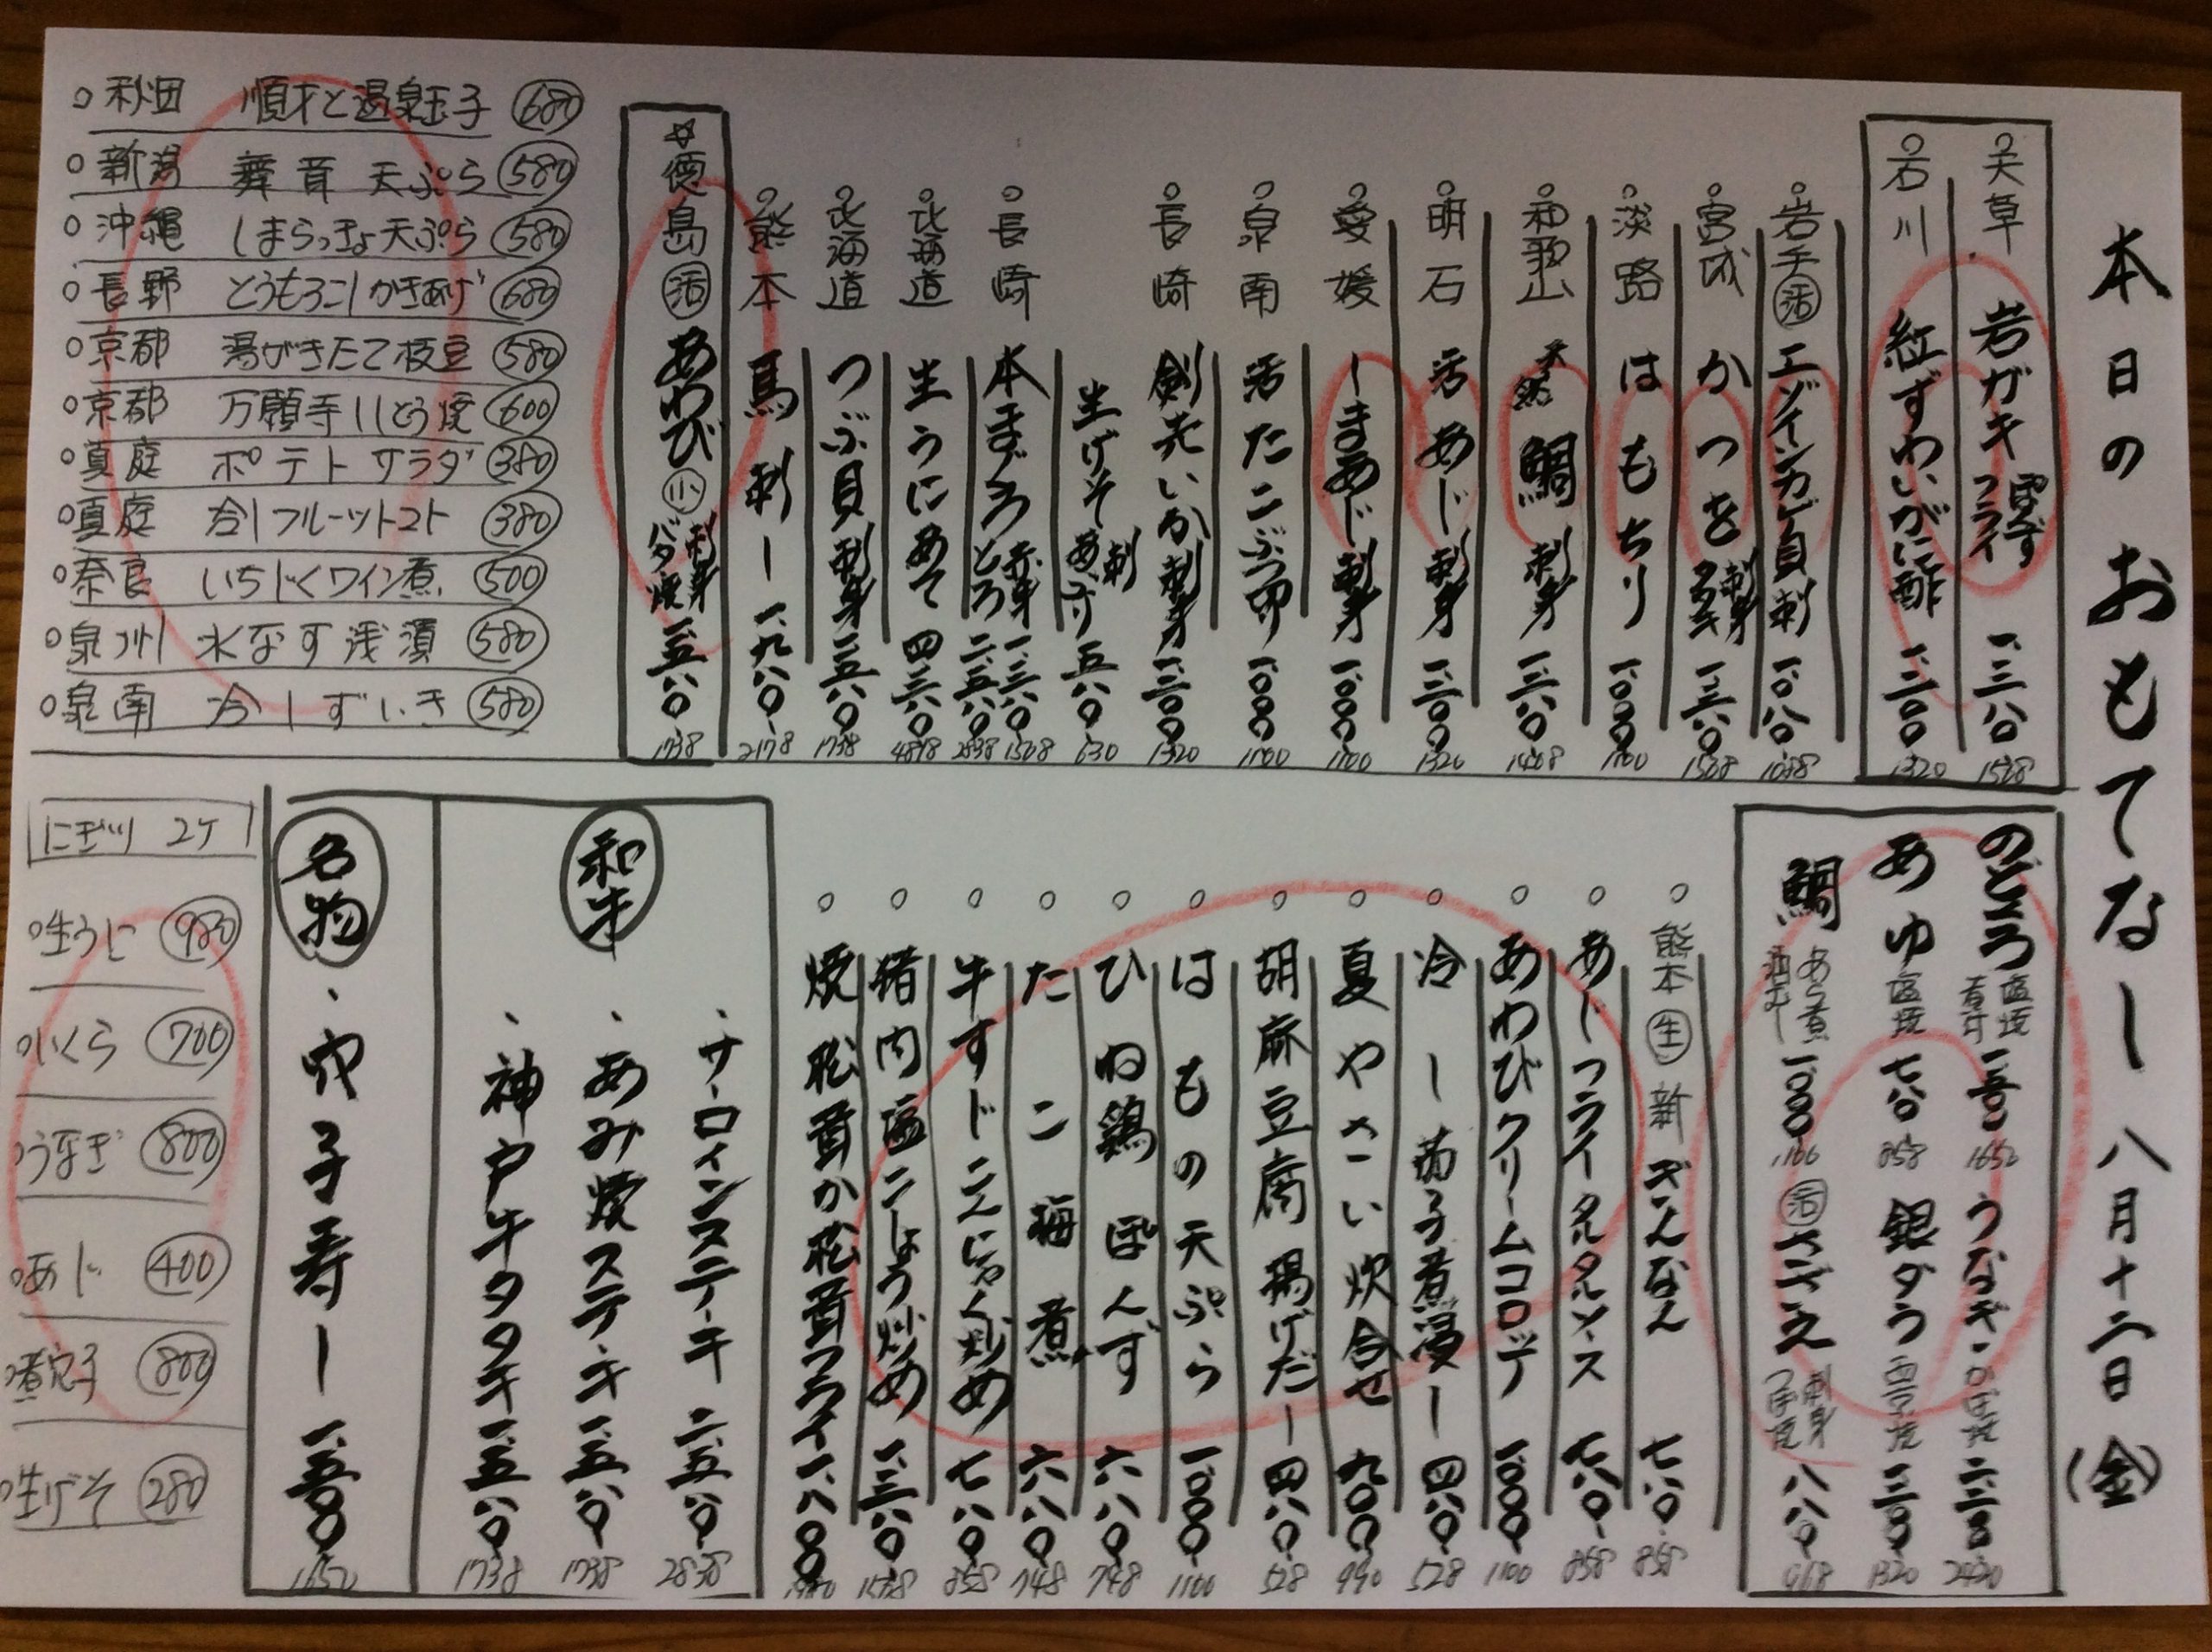 本日のおもてなし 八月十二日(金)
○天草 岩ガキ ぽんず フライ 一、三八〇 1518
○石川 紅ずわいがに酢 一、二〇〇 1320
○岩手 活 エゾイシカゲ貝刺
○宮城 かつを 刺身 タタキ 一、三八〇 1518
○淡路 はもちり 一、〇〇〇 1100
○和歌山 天然 鯛 刺身
○明石 活あじ 刺身 一、二〇〇 1320
○愛媛 しまあじ 刺身 一、〇〇〇 1100
○泉南 活たこぶつ切り 一、〇〇〇 1100
○長崎 剣先いか 刺身 一、二〇〇 1320
生げそ 刺 あぶり 五八〇
○長崎 本まぐろ 赤身 一、三八〇 1518 とろ 二、五八〇 2838
○北海道 生うにあて 四、三八〇 4818
○北海道 つぶ貝 刺身 一、五八〇 1738
○熊本 馬刺し 一、九八〇 2178
☆徳島 活 あわび 小 刺身 バタ焼 一、五八〇 1738
○秋田 順才と温泉玉子 680
○新潟 舞茸 天ぷら 580
○沖縄 しまらっきょ天ぷら 580
○長野 とうもろこしかきあげ 680
○京都 湯がきたて枝豆 580
○京都 万願寺ししとう焼 600
○真庭 ポテトサラダ 380
○真庭 冷しフルーツトマト 380
○奈良 いちじくワイン煮 500
○泉州 水なす浅漬 580
○泉南 冷しずいき 580
のどぐろ 塩焼 煮付 一、五〇〇 1650 うなぎ かば焼 二、二〇〇 2420
あゆ 塩焼 七八〇 858 銀ダラ 西京焼 一、二〇〇 1320
鯛 あら煮 酒むし 一、〇〇〇 1100 活 さざえ 刺身 つぼ焼 八八〇 968
○熊本 生 新ぎんなん 七八〇 858
○あじフライタルタルソース 七八〇 858
○あわびクリームコロッケ 一、〇〇〇 1100
○冷し茄子煮浸し 四八〇 528
○夏やさい炊合せ 九〇〇 990
○胡麻豆腐 揚げだし 四八〇 528
○はもの天ぷら 一、〇〇〇 1100
○ひね鶏ぽんず 六八〇 748
○たこ 梅煮 六八〇 748
○牛すじこんにゃく炒め 七八〇 858
○猪肉塩こしょう炒め 一、三八〇 1518
○焼松茸か松茸フライ 一、八〇〇 1980
和牛
・サーロインステーキ 二、五八〇 2838
・あみ焼ステーキ 一、五八〇 1738
・神戸牛タタキ 一、五八〇 1738
名物
・穴子寿し 一、五〇〇 1650
にぎり 2ケ
○生うに 980
○いくら 700
○うなぎ 800
○あじ 400
○煮穴子 800
○生げそ 280